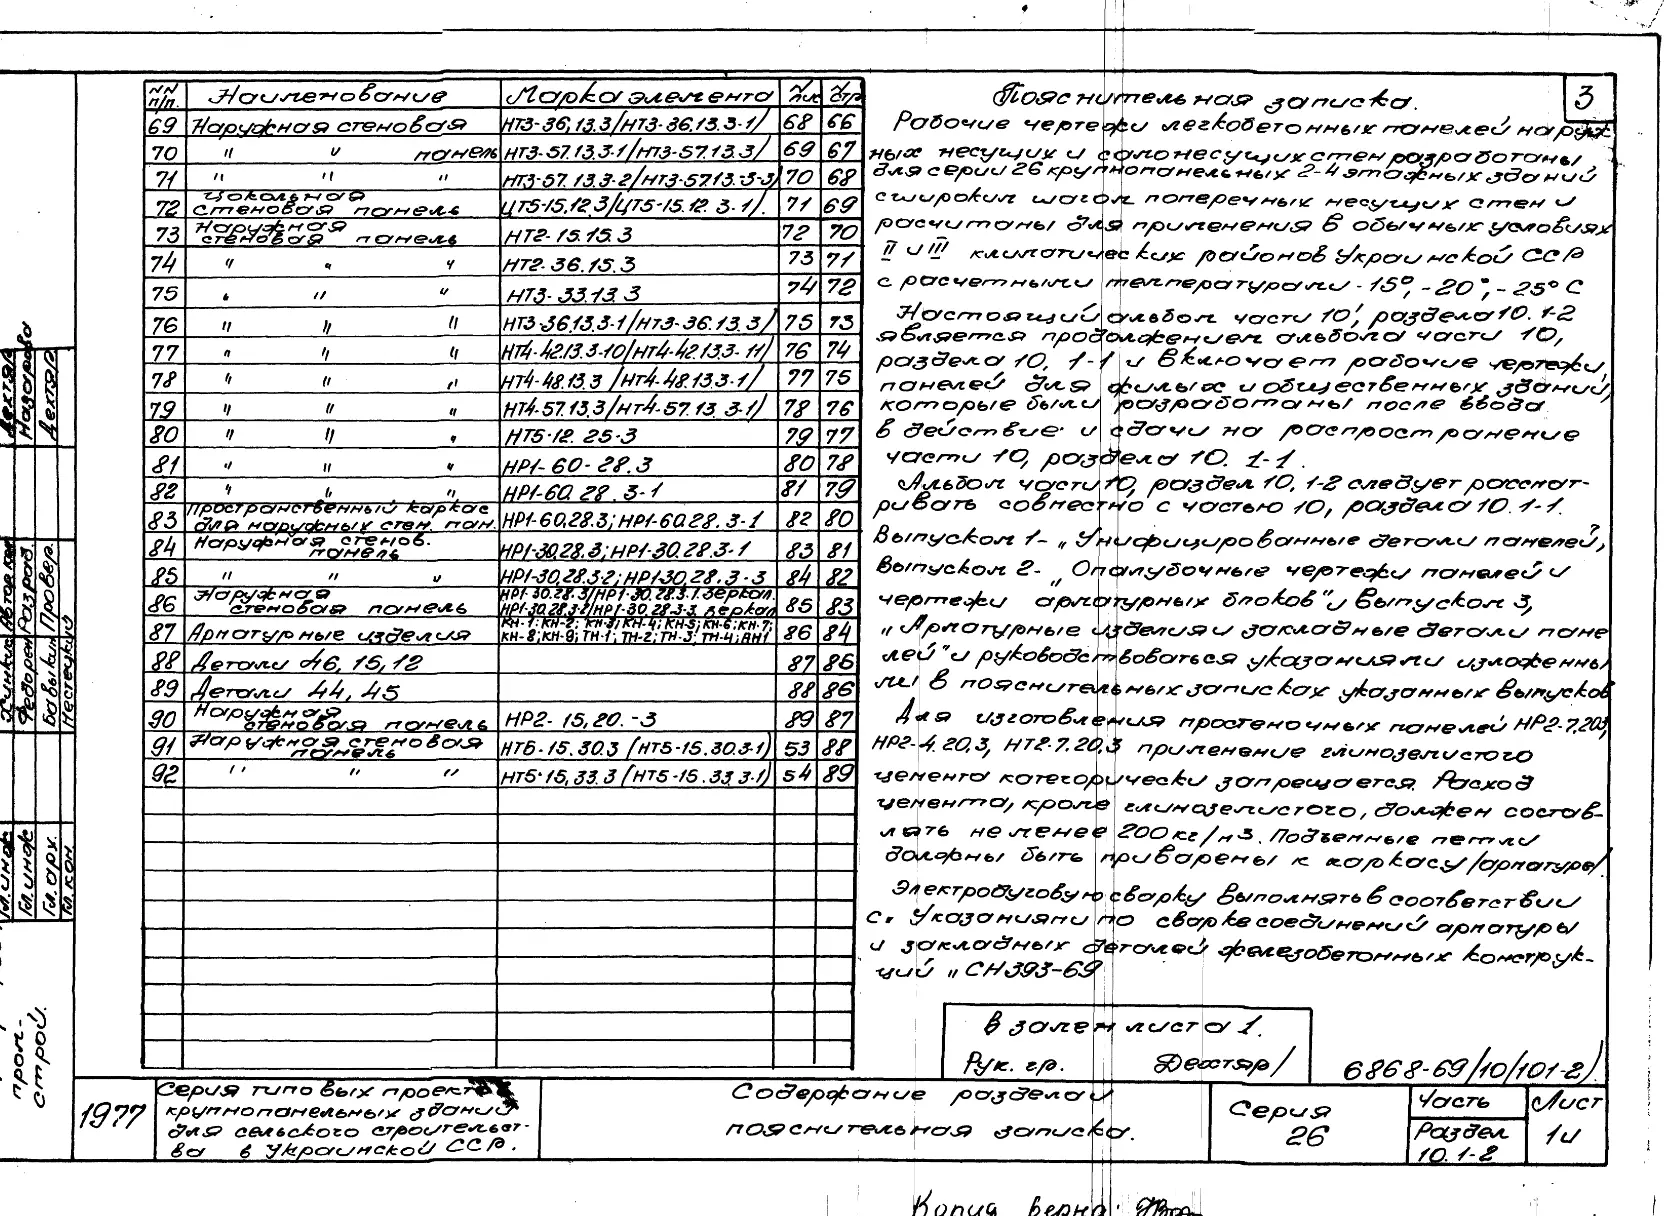 3
NN п/п. Наименование Марка элемента N лис N стр
69 Наружная стеновая НТ3-36,13.3/НТ3-36.13.3-1/ 68 66
70 " " панель НТ3-57.13.3-1/НТ3-57.13.3/ 69 67
71 " " " НТ3-57.13.3-2/НТ3-57.13.3-3/ 70 68
72 Цокольная стеновая панель ЦТ5-15.12.3/ЦТ5-15.12.3-1/. 71 69
73 Наружная стеновая панель НТ2-15.15.3 72 70
74 " " " НТ2.36.15.3 73 71
75 " " " НТ3-33.13.3 74 72
76 " " " НТ3-36.13.3-1/НТ3-36.13.3/ 75 73
77 " " " НТ4-42.13.3-10/НТ4-42.13.3-11/ 76 74
78 " " " НТ4-48.13.3/НТ4-48.13.3-1/ 77 75
79 " " " НТ4-57.13.3/НТ4-57.13.3-1/ 78 76
80 " " " НТ5-12.25-3 79 77
81 " " " НР1-60-28.3 80 78
82 " " " НР1-60.28.3-1 81 79
83 Пространственный каркас для наружных стен. пан. НР1-60.28.3; НР1-60.28.3-1 82 80
84 Наружная стенов. панель НР1-30.28.3; НР1-30.28.3-1 83 81
85 " " " НР1-30.28.3-2; НР1-30.28.3-3 84 82
86 Наружная стеновая панель НР1-30.28.3/НР1-30.28.3.1.зеркал. НР1-30.28.3-2/НР1-30.28.3-3.зеркал 85 83
87 Арматурные изделия КН-1; КН-2; КН-3; КН-4; КН-5; КН-6; КН-7; КН-8; КН-9; ТН-1; ТН-2; ТН-3; ТН-4; ВН1 86 84
88 Детали 46, 15, 12 87 85
89 Детали 44, 45 88 86
90 Наружная стеновая панель НР2-15,20.-3 89 87
91 Наружная стеновая панель НТ5-15.30.3 (НТ5-15.30.3-1) 53 88
92 " " " НТ5-15.33.3 (НТ5-15.33.3-1) 54 89
Пояснительная записка.
Рабочие чертежи легкобетонных панелей наруж
ных несущих и самонесущих стен разработаны
для серии 26 крупнопанельных 2-4 этажных зданий
с широким шагом поперечных несущих стен и
расчитаны для применения в обычных условиях
II и III климатических районов Украинской ССР
с расчетными температурами -15°, -20°, -25° С
Настоящий альбом части 10, раздела 10.1-2
является продолжением альбома части 10,
раздела 10.1-1 и включает рабочие чертежи,
панелей для жилых и общественных зданий,
которые были разработаны после ввода
в действие и сдачи на распространение
части 10, раздела 10.1-1.
Альбом части 10, раздел 10.1-2 следует рассмат-
ривать совместно с частью 10, раздела 10.1-1.
Выпуском 1- „Унифицированные детали панелей,
выпуском 2- „Опалубочные чертежи панелей и
чертежи арматурных блоков" и выпуском 3,
„Арматурные изделия и закладные детали пане
лей" и руководствоваться указаниями изложенны
ми в пояснительных записках указанных выпусков
Для изготовления простеночных панелей НР2-7.20.3,
НР2-4.20.3, НТ2-7.20.3 применение глиноземистого
цемента категорически запрещается. Расход
цемента, кроме глиноземистого, должен состав-
лять не менее 200 кг/м3. Подъемные петли
должны быть приварены к каркасу /арматуре/.
Электродуговую сварку выполнять в соответствии
с „Указаниями по сварке соединений арматуры
и закладных деталей железобетонных конструк-
ций „СН393-69
Взамен листа 1.
Рук. гр. Дехтяр/
6868-69/10/101-2/.
1977
Серия типовых проектов
крупнопанельных зданий
для сельского строительст-
ва в Украинской ССР.
Содержание раздела и
пояснительная записка.
Серия
26
Часть
Раздел
10.1-2
Лист
1и
Дехтяр
Назарова
Дехтяр
Федорен
Разраб.
Бабыкин
Провер.
Нестецкий
Гл.инж
Гл.инж
Гл.арх.
Гл.кон.
пром-
строй.
Копия верна: